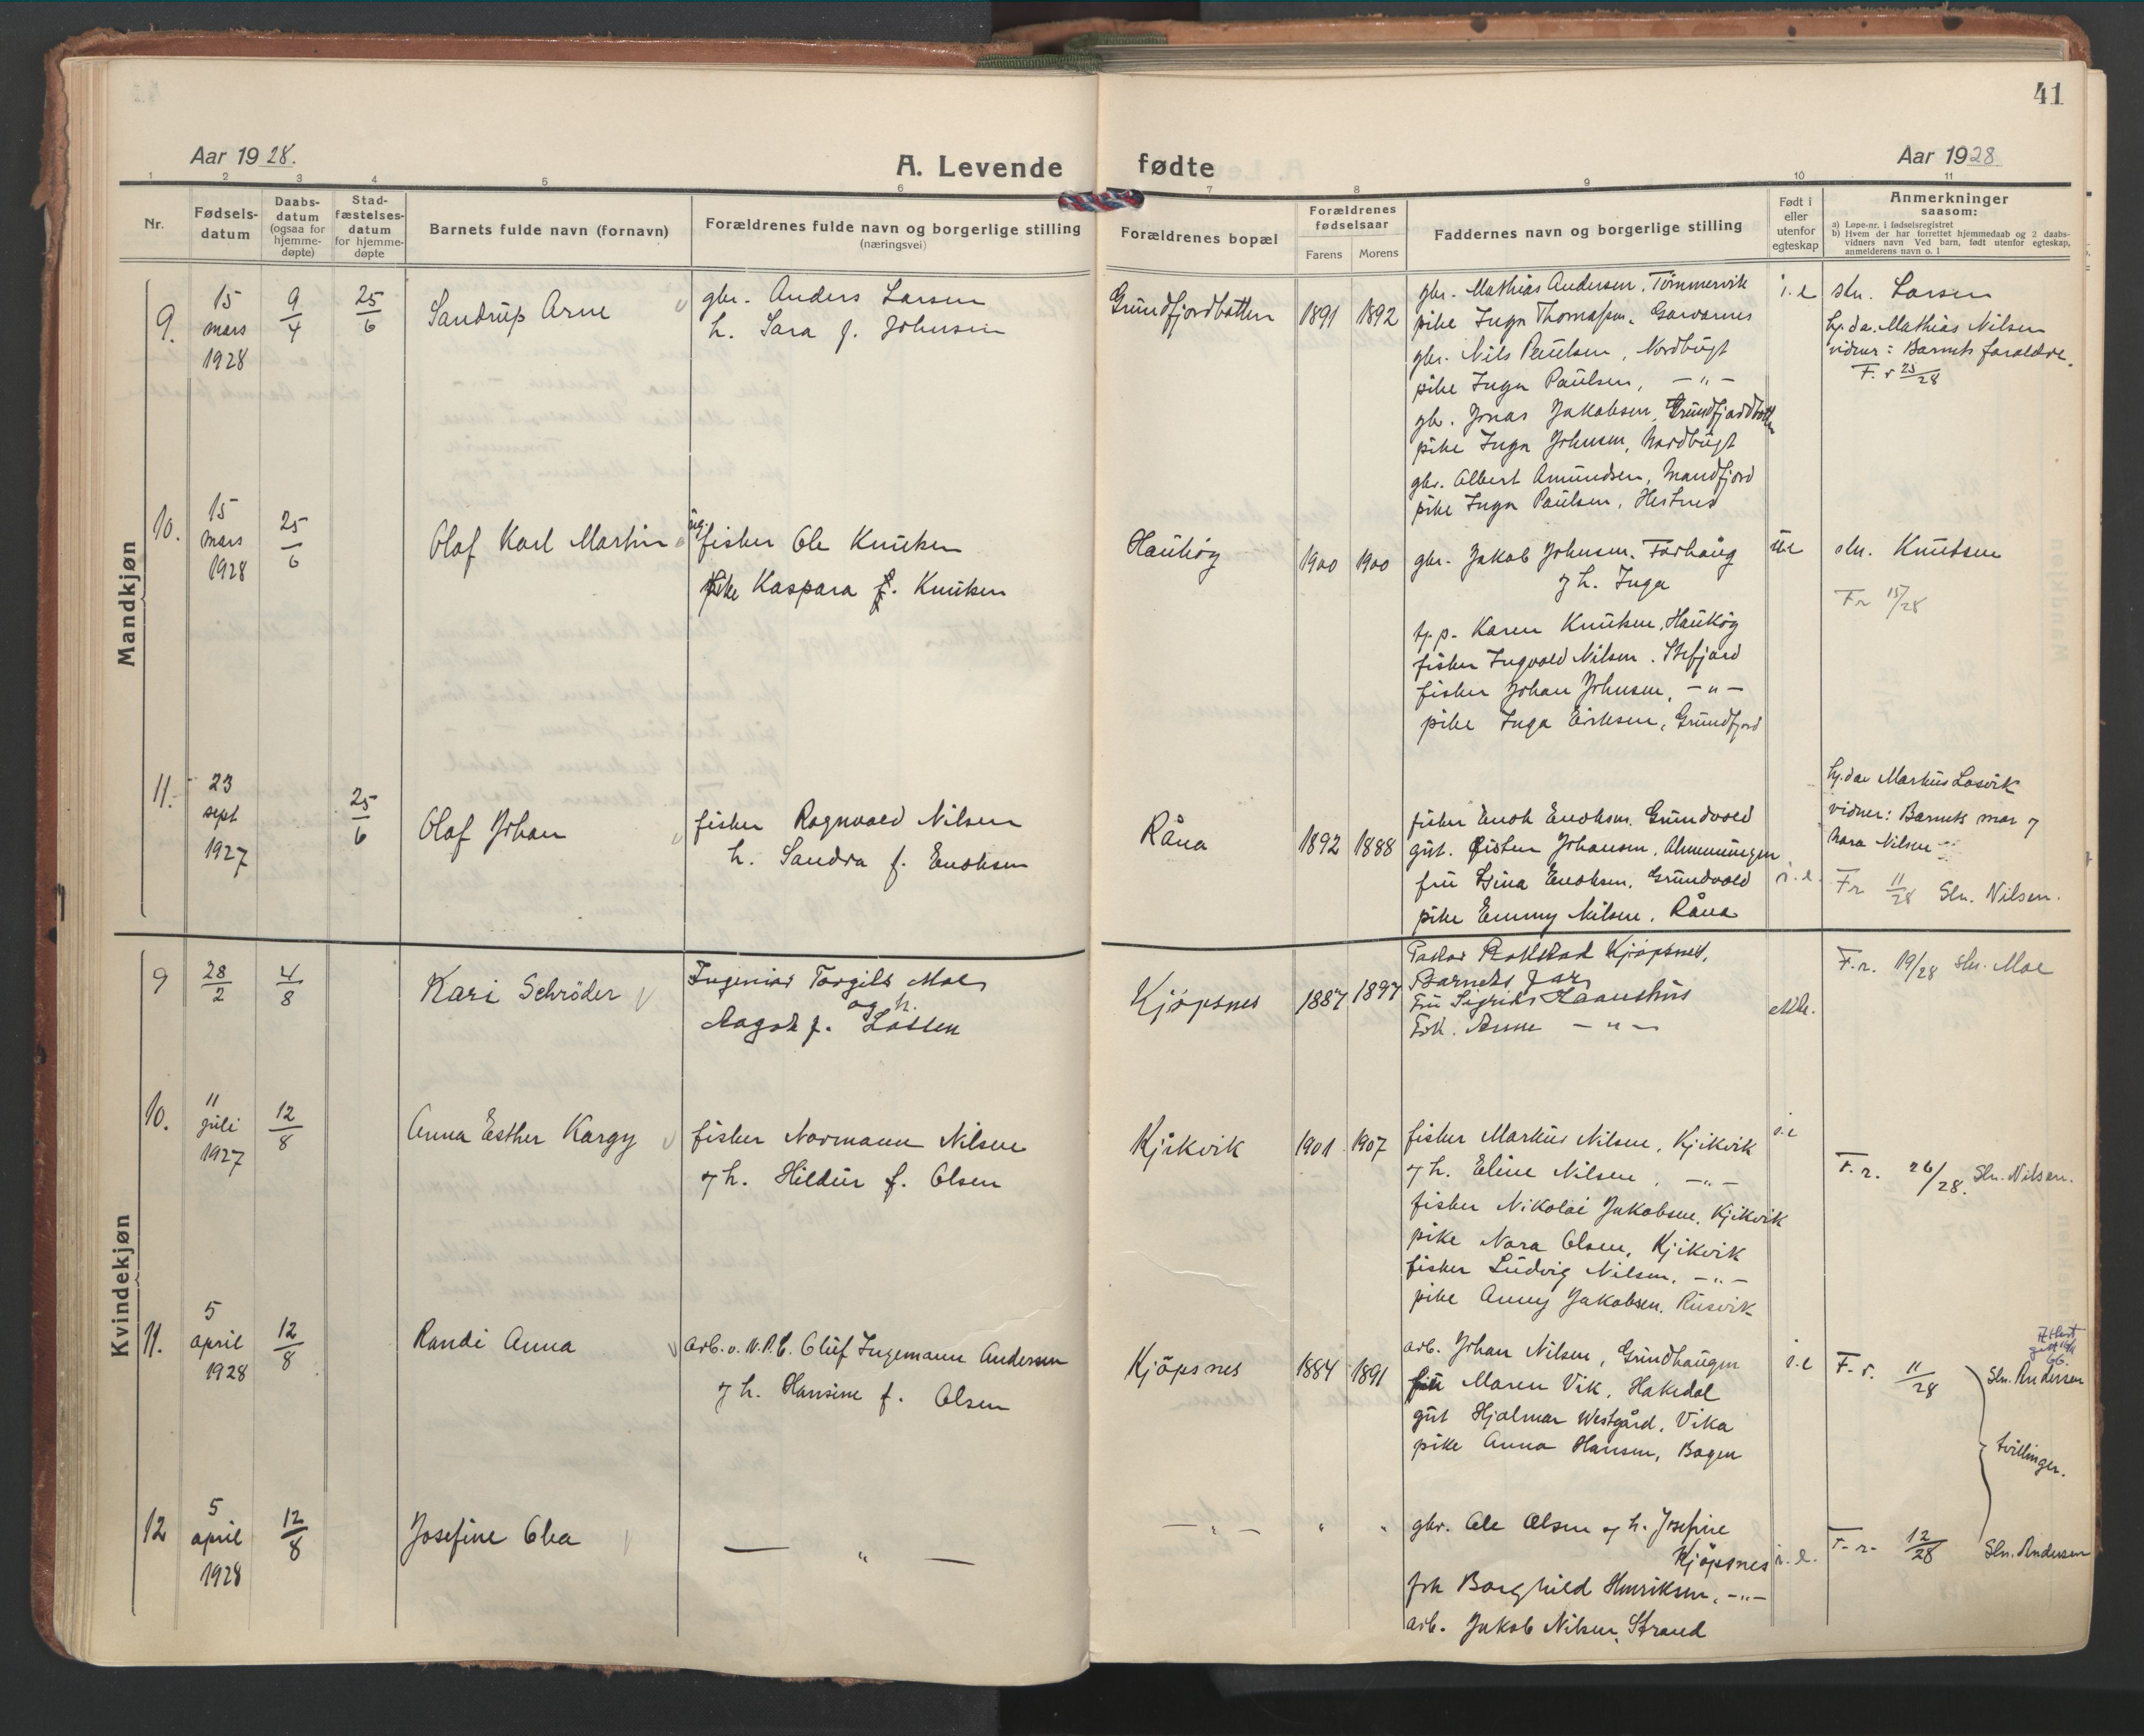 41
Aar 1928.
A. Levende fødte
Aar 1928
1 2 3 4 5 6 7 8 9 10 11
Nr.
Fødsels-
datum
Daabs-
datum
(ogsaa for
hjemme-
døpte)
Stad-
fæstelses-
datum
for hjemme-
døpte
Barnets fulde navn (fornavn)
Forældrenes fulde navn og borgerlige stilling
(næringsvei)
Forældrenes bopæl
Forældrenes
fødselsaar
Farens Morens
Faddernes navn og borgerlige stilling
Født i
eller
utenfor
egteskap
Anmerkninger
saasom:
a) Løpe-nr. i fødselsregistret
b) Hvem der har forrettet hjemmedaab og 2 daabs-
vidners navn Ved barn, født utenfor egteskap,
anmelderens navn o. l
Mandkjøn
9.
15
mars
1928
9/4
25/6
Sandrup Arne
gbr. Anders Larsen
h. Sara f. Johnsen
Grundfjordbotten
1891 1892
gbr. Mathias Andersen, Tømmervik
pike Inga Thomassen,
gbr. Nils Paulsen, Nordbugt
pike Inga Paulsen, — " —
gbr. Jonas Jakobsen, Grundfjordbotten
pike Inga Johnsen, Nordbugt
gbr. Albert Amundsen, Mandfjord
pike Inga Paulsen, Hestnes
i.e
sln. Larsen
hj.da. Mathias Nilsen
vidner: Barnets foreldre.
F. r 25/28
10.
15
mars
1928
25/6
Olaf Karl Martin
ug. fisker Ole Knutsen
pike Kaspara f. Knutsen
Haukøy
1900 1900
gbr. Jakob Johnsen, Forhaug
og h. Inga
tj.p. Karen Knutsen, Haukøy
fisker Ingvald Nilsen, Stefjord
fisker Johan Johnsen, — " —
pike Inga Eriksen, Grundfjord
u.e
sln. Knutsen
Fr 15/28
11.
23
sept
1927
25/6
Olaf Johan
fisker Ragnvald Nilsen
h. Sandra f. Enoksen
Råna
1892 1888
fisker Enok Enoksen, Grundvold
gut. Øistein Johansen,
fru Gina Enoksen, Grundvold
pike Emmy Nilsen, Råna
i.e.
hj.daa Markus Losvik
vidner: Barnets mor og
Nora Nilsen
Fr 11/28 Sln. Nilsen.
Kvindekjøn
9
28/2
4/8
Kari Schrøder
Ingeniør Torgils Moe
og h.
Aagot f. Lassen
Kjøpsnes
1887 1897
Pastor Kjøpsnes,
Barnets far
Fru Sigrid
Frk. Anne — " —
F.r. 19/28 sln. Moe
10.
11
juli
1927
12/8
Anna Esther Kargy
fisker Normann Nilsen
og h. Hildur f. Olsen
Kjikvik
1901 1907
fisker Markus Nilsen, Kjikvik
og h. Eline Nilsen, — " —
fisker Nikolai Jakobsen, Kjikvik
pike Nora Olsen, Kjikvik
fisker Ludvig Nilsen, — " —
pike Anny Jakobsen, Rusvik
i.e
F.r. 26/28. Sln. Nilsen.
11.
5
april
1928
12/8
Randi Anna
arb. v. N.P.C. Oluf Ingemann Andersen
og h. Hansine f. Olsen
Kjöpsnes
1884 1891
arb. Johan Nilsen, Grundhaugen
fru Maren Vik, Hakedal
gut Hjalmar Westgård, Vika
pike Anna Hansen, Bogen
i.e
F.r. 11/28
Sln. Andersen
tvillinger.
12
5
april
1928
12/8
Josefine Olea
— " —
— " —
" "
gbr. Ole Olsen og h. Josefine
Kjöpsnes
frk Borghild Henriksen, — " —
arb. Jakob Nilsen, Strand
i.e.
F.r. 12/28 Sln. Andersen